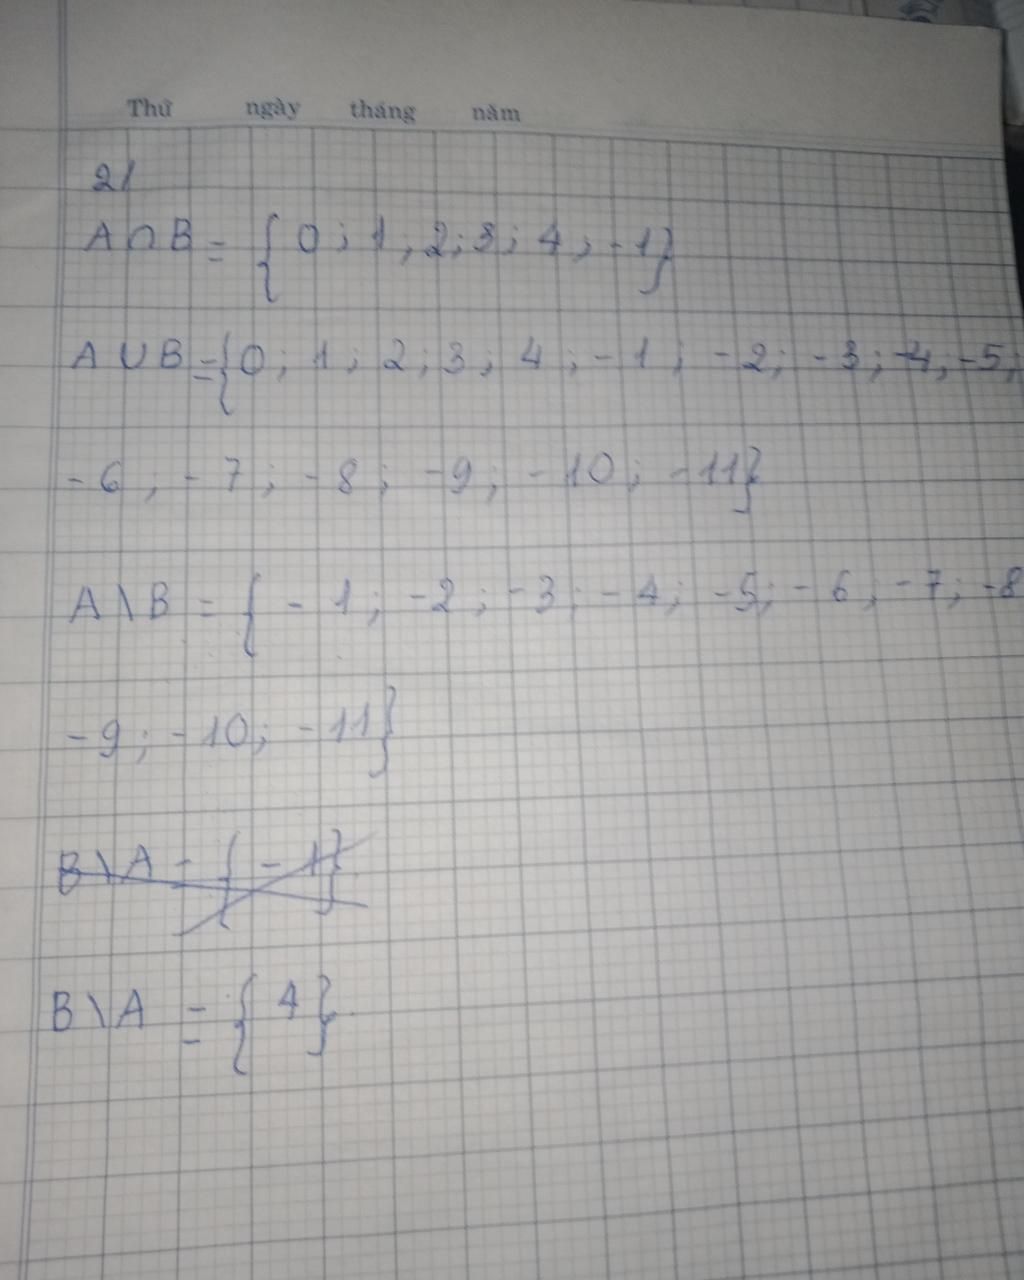 Thứ ngày tháng năm
2/
A∩B = {0; 1; 2; 3; 4; -1}
A∪B = {0; 1; 2; 3; 4; -1; -2; -3; -4; -5;
-6; -7; -8; -9; -10; -11}
A\B = {-1; -2; -3; -4; -5; -6; -7; -8
-9; -10; -11}
B\A = {-1}
B\A = {4}